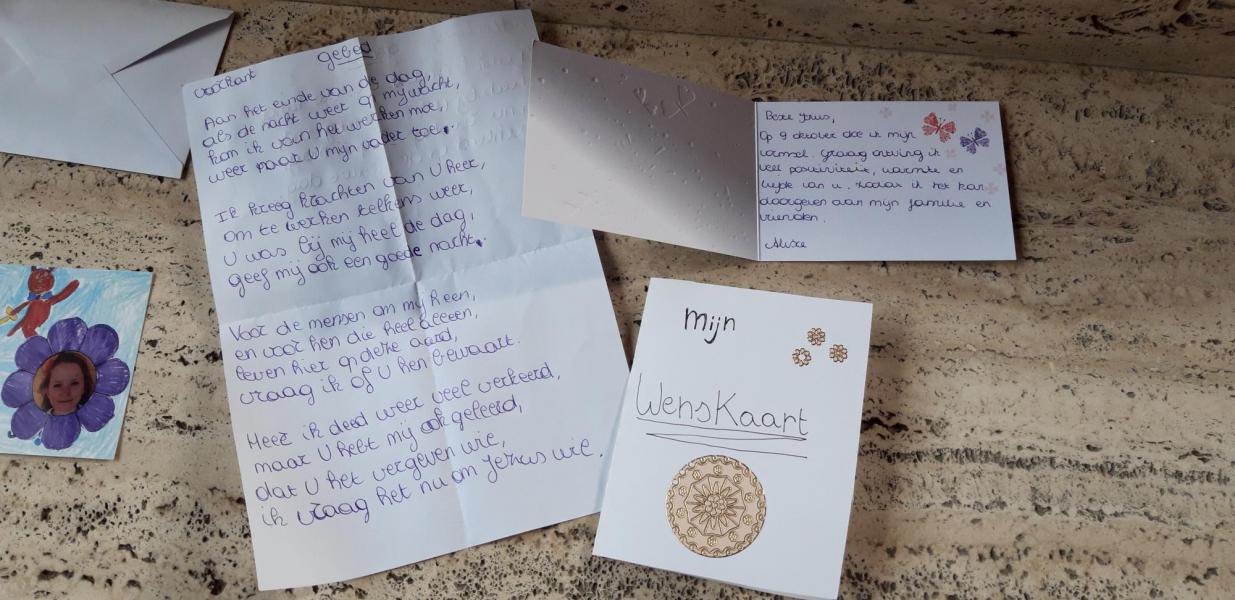 voorkant gebed
Aan het einde van de dag,
als de nacht weer op mij wacht,
kan ik van het werken moe,
weer naar U mijn vader toe.
Ik kreeg krachten van U heer,
om te werken telkens weer,
U was bij mij heel de dag,
geef mij ook een goede nacht.
Voor de mensen om mij heen,
en voor hen die heel alleen,
leven hier op deze aard,
vraag ik of U hen bewaart.
Heer ik deed weer veel verkeerd,
maar U hebt mij ook geleerd,
dat U het vergeven wil,
ik vraag het nu om Jezus wil.
Beste Jezus,
Op 9 oktober doe ik mijn
vormsel. Graag ontving ik
veel positiviteit, warmte en
liefde van u. Zodat ik het kan
doorgeven aan mijn familie en
vrienden.
Mijn
Wenskaart